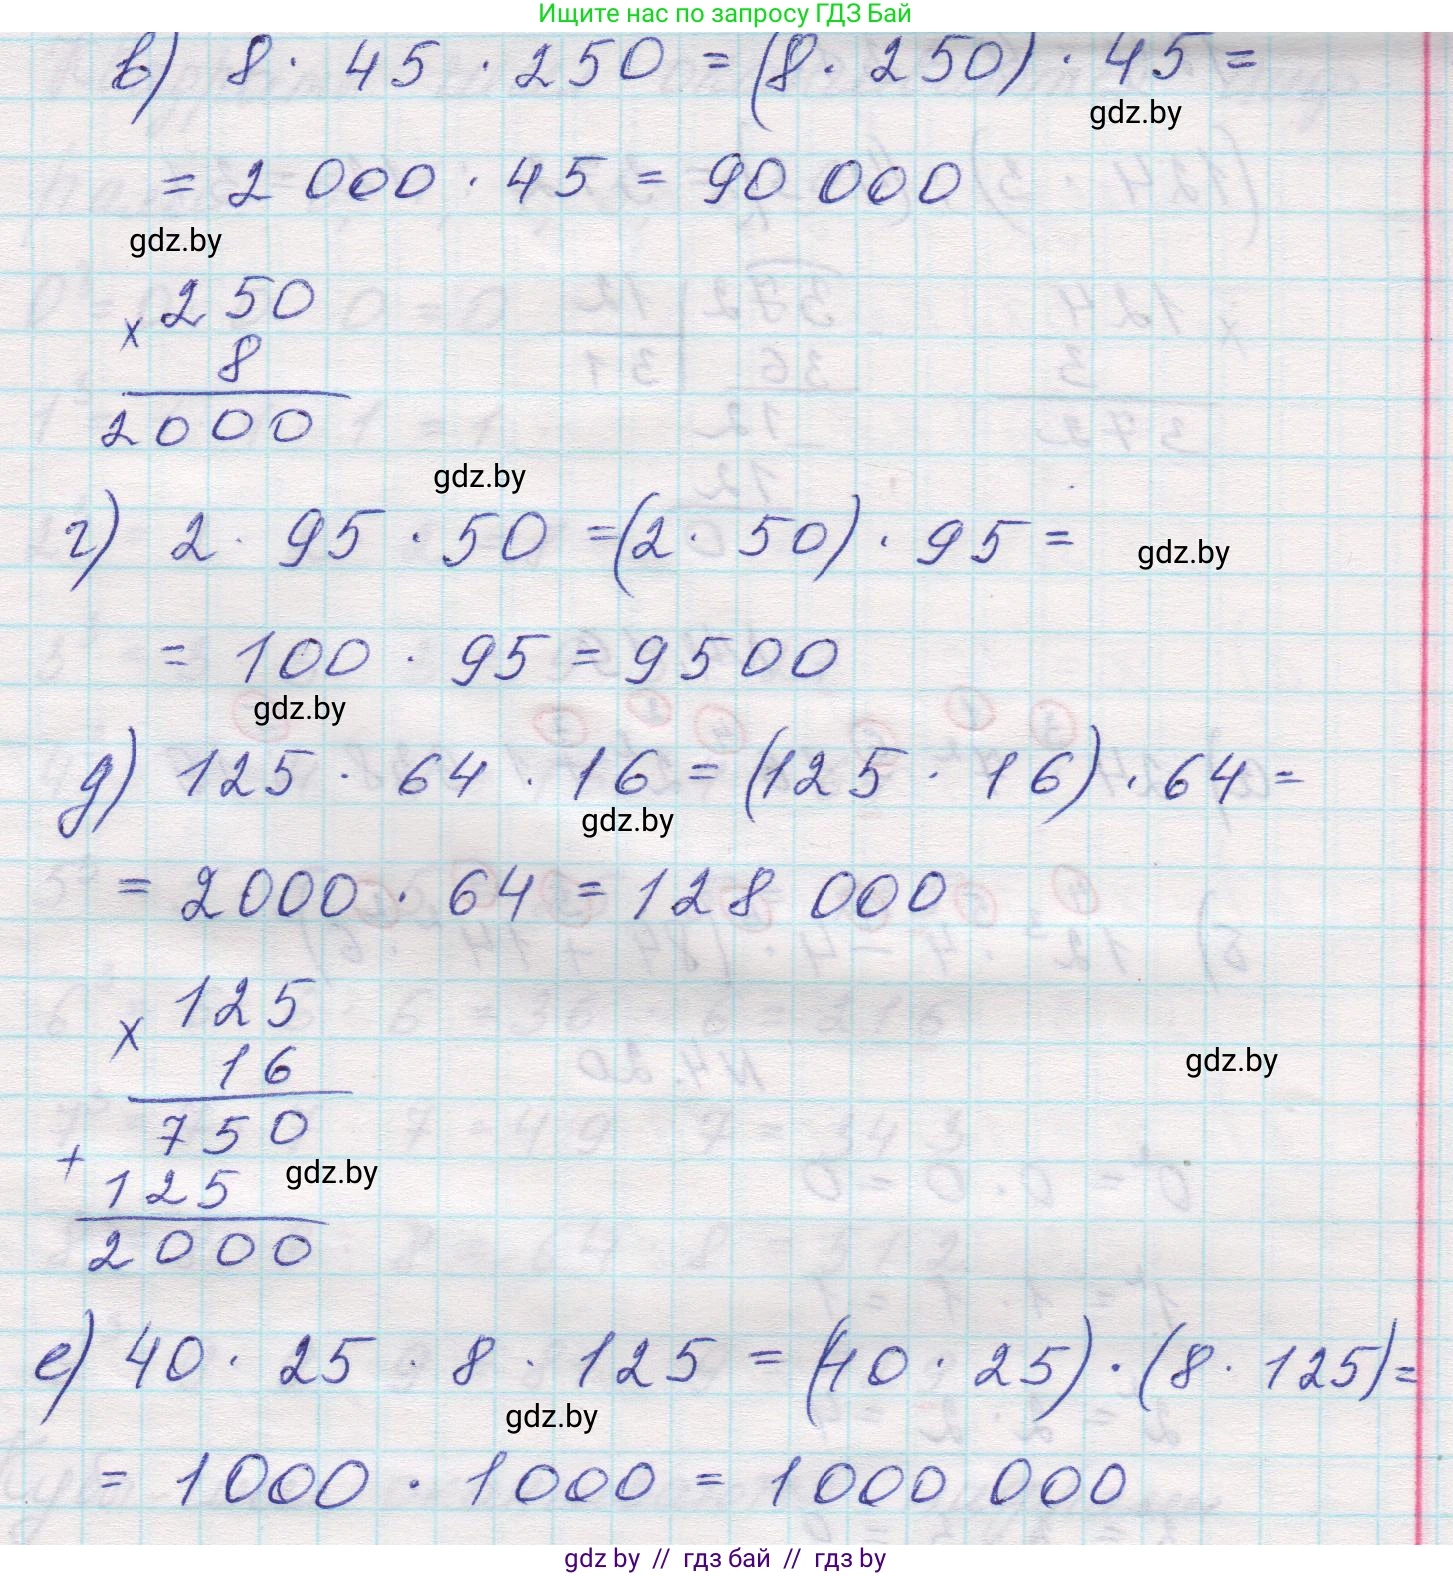 Ищите нас по запросу ГДЗ Бай
в) 8 · 45 · 250 = (8 · 250) · 45 =
gdz.by
= 2 000 · 45 = 90 000
gdz.by
× 250
8
2000
gdz.by
г) 2 · 95 · 50 = (2 · 50) · 95 =
gdz.by
= 100 · 95 = 9500
gdz.by
д) 125 · 64 · 16 = (125 · 16) · 64 =
gdz.by
= 2000 · 64 = 128 000
× 125
16
gdz.by
750
+ 125
gdz.by
2000
е) 40 · 25 · 8 · 125 = (40 · 25) · (8 · 125) =
gdz.by
= 1000 · 1000 = 1 000 000
gdz by // гдз бай // гдз by